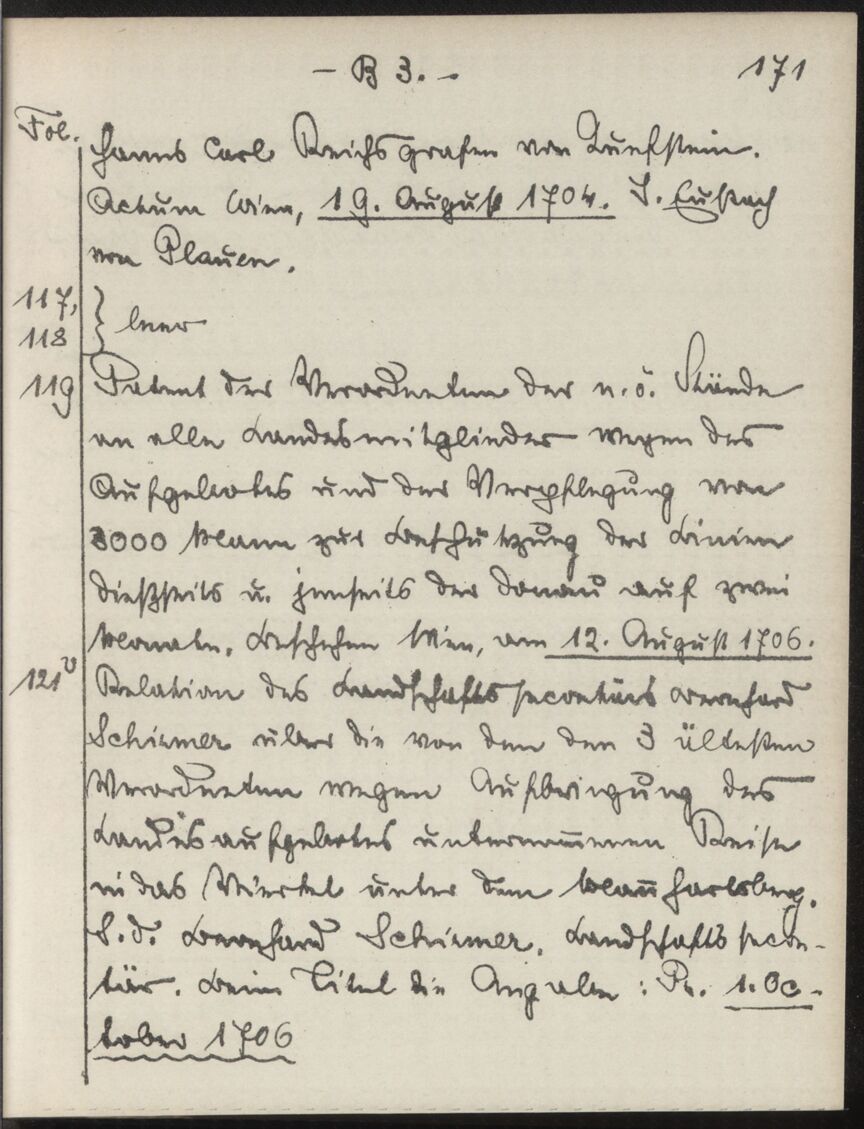 - B 3. - 171
Fol. Hanns Carl Reichsgrafen von Kuefstein.
Actum Wien, 19. August 1704. J. Eustach
von Plauen.
117,
118 } leer
119 Patent der Verordneten der n.ö. Stände
an alle Landesmitglieder wegen des
Aufgebotes und der Verpflegung von
3000 Mann zur Beschützung der Linien
dießseits u. jenseits der Donau auf zwei
Monate. Beschehen Wien, am 12. August 1706.
121v Relation des Landschaftssecretärs Bernhard
Schirmer über die von dem den 3 ältesten
Verordneten wegen Aufbringung des
Landesaufgebotes unternom̅enen Reise
in das Viertel unter dem Man̅hartsberg.
S.d. Bernhard Schirmer, Landschaftssecre-
tär. Beim Titel die Angabe: Pr. 1. Oc-
tober 1706